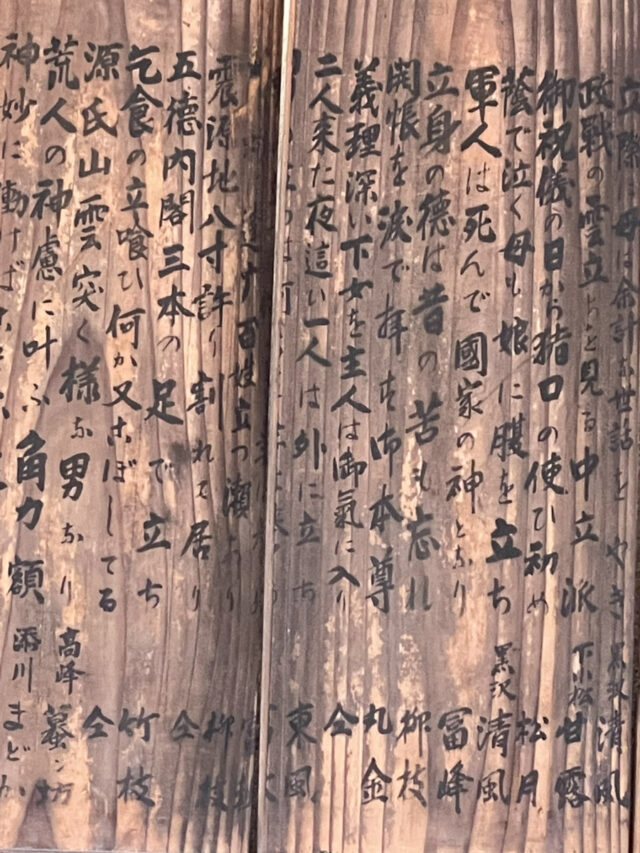 立際 母は余計な世話をやき 黒沢 清風
政戦の雲立ちを見る中立派 下小松 甘露
御祝儀の日から猪口の使ひ初め 松月
蔭で泣く母も娘に腹を立ち 黒沢 清風
軍人は死んで國家の神となり 冨峰
立身の徳は昔の苦も忘れ 柳枝
開帳を涙で拝す御本尊 丸金
義理深い下女を主人は御氣に入り 仝
二人来た夜這い一人は外に立ち 東風
百姓立つ瀬なり
震源地八寸許り割れて居り 柳枝
五徳内閣三本の足で立ち 仝
乞食の立喰ひ何か又こぼしてる 竹枝
源氏山雲突く様な男なり 仝
荒人の神慮に叶ふ角力額 高峰 墓ン坊
神妙に働けば 添川 まどか